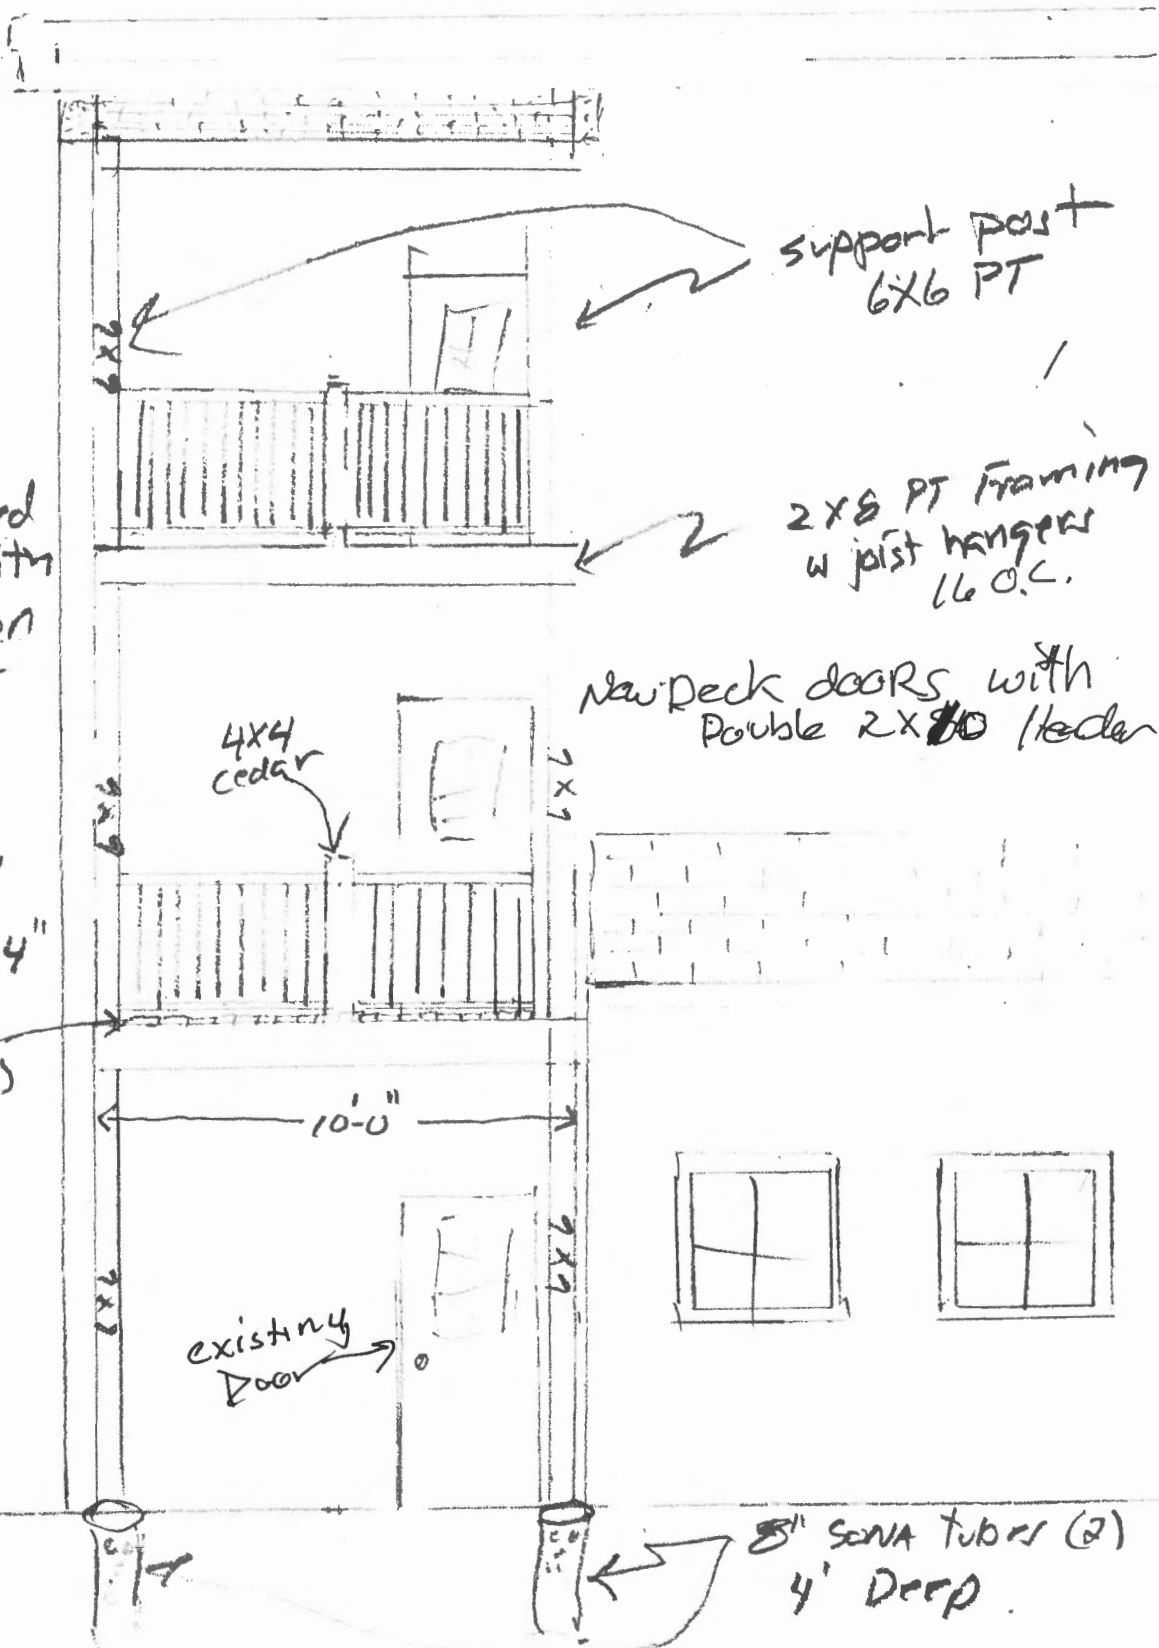 support post
6X6 PT
6X6
2X8 PT Framing
w joist hangers
16 O.C.
New Deck doors with
Double 2X10 Header
4X4
cedar
6X6
4"
10'-0"
existing
Door
8" SONA tubes (2)
4' Deep